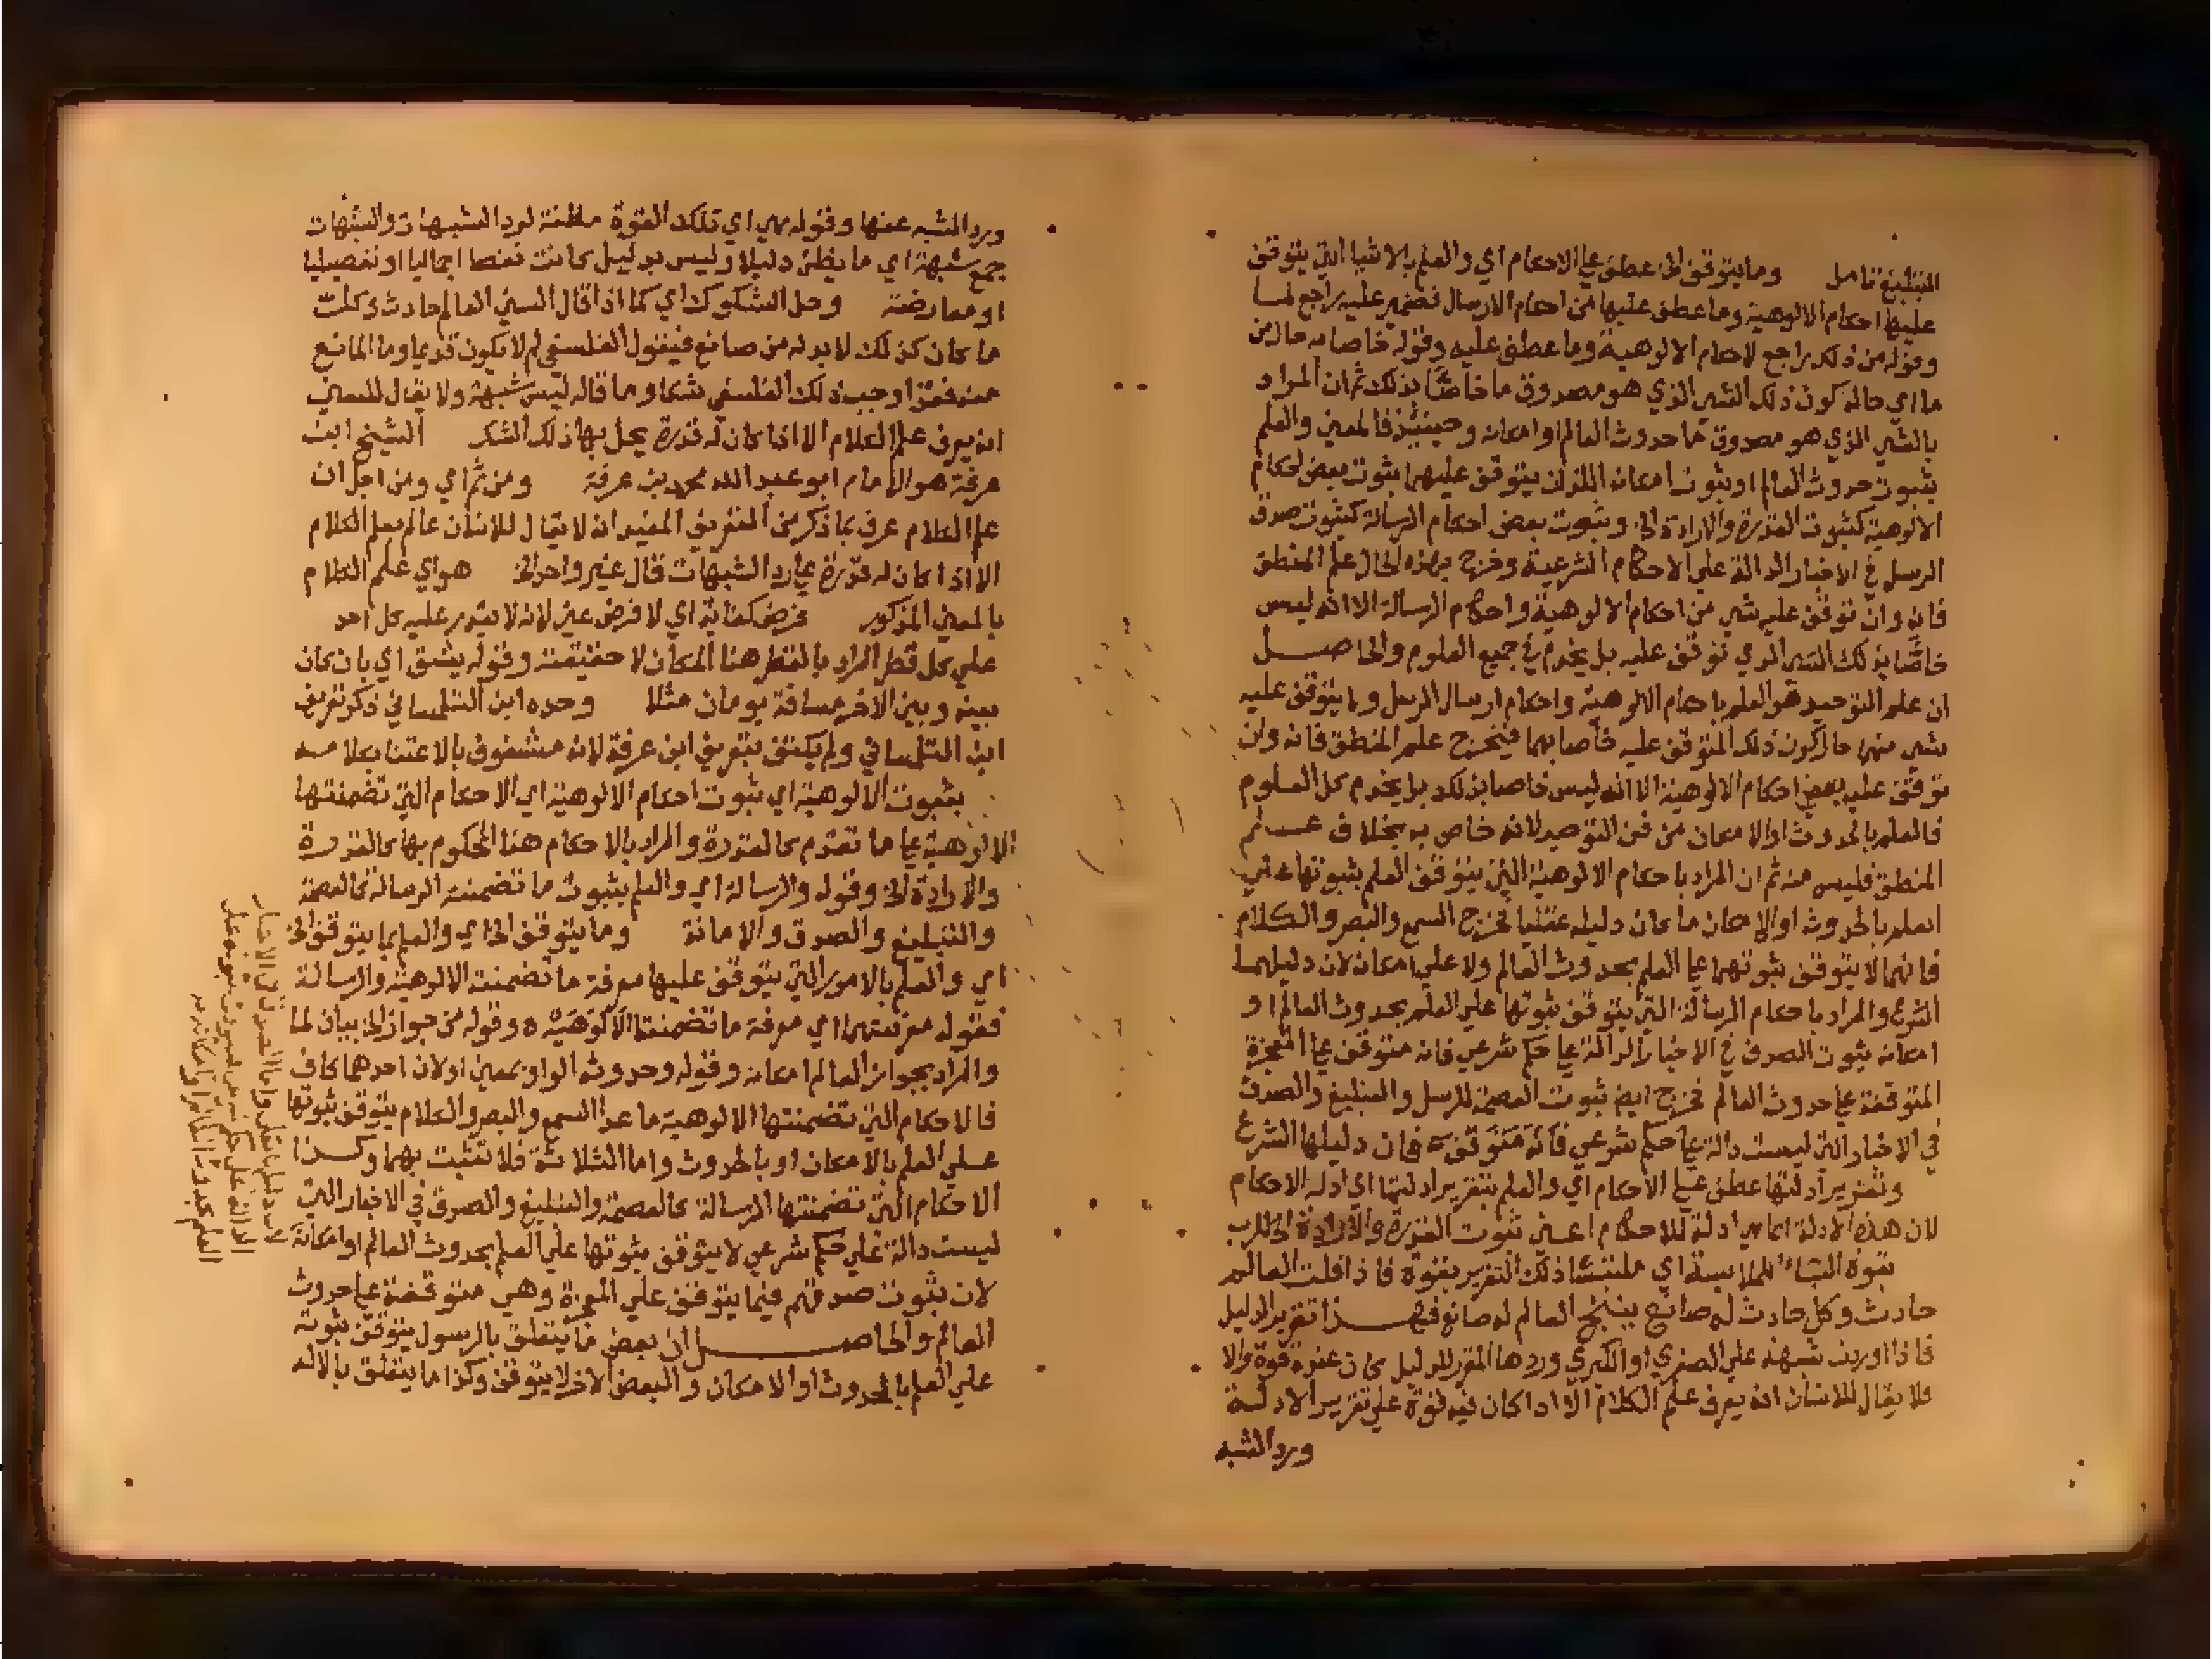 التبليغ تامل وما يتوقف الخ عطف على الاحكام اي والعلم بالاشيا التي يتوقف
عليها احكام الالوهية وما عطف عليها من احكام الارسال فضمير عليه راجع لما
وقوله من ذلك راجع لاحكام الالوهية وما عطف عليه وقوله خاصا به حال من
ما اي حالة كون ذلك الشي الذي هو مصدوق ما خاصًّا بذلك ثم ان المراد
بالشي الذي هو مصدوق ما حدوث العالم او امكانه وحينئذ فالمعني والعلم
بثبوت حدوث العالم او بثبوت امكانه اللذان يتوقف عليهما ثبوت بعض احكام
الالوهية كثبوت القدرة والارادة الخ وبثبوت بعض احكام الرسالة كثبوت صدق
الرسل في الاخبار الدالة علي الاحكام الشرعية وخرج بهذه الحال علم المنطق
فانه وان توقف عليه شي من احكام الالوهية واحكام الرسالة الا انه ليس
خاصًّا بذلك الشي الذي توقف عليه بل يخدم في جميع العلوم والحاصل
ان علم التوحيد هو العلم باحكام الالوهية واحكام ارسال الرسل وما يتوقف عليه
شي منها حال كون ذلك المتوقف عليه خاصا بهما فيخرج علم المنطق فانه وان
توقف عليه بعض احكام الالوهية الا انه ليس خاصا بذلك بل يخدم كل العلوم
فالعلم بالحدوث او الامكان من فن التوحيد لانه خاص به بخلاف علم
المنطق فليس منه ثم ان المراد باحكام الالوهية التي يتوقف العلم بثبوتها علي
العلم بالحدوث او الامكان ما كان دليله عقليا فخرج السمع والبصر والكلام
فانها لا يتوقف ثبوتهما على العلم بحدوث العالم ولا علي امكانه لان دليلهما
الشرع والمراد باحكام الرسالة التي يتوقف ثبوتها علي العلم بحدوث العالم او
امكانه ثبوت الصدق في الاخبار الدالة على حكم شرعي فانه متوقف على المعجزة
المتوقفة على حدوث العالم فخرج ايضا ثبوت العصمة للرسل والتبليغ والصدق
في الاخبار التي ليست دالة على حكم شرعي فانه متوقف فان دليلها الشرع
وتقرير ادلتها عطف على الاحكام اي والعلم بتقرير ادلتها اي ادلة الاحكام
لان هذه الادلة انما هي ادلة للاحكام اعني ثبوت القدرة والارادة الخ للرب
بقوة الباء للملابسة اي ملتبسا ذلك التقرير بقوة فاذا قلت العالم
حادث وكل حادث له صانع ينتج العالم له صانع فهذا تقرير الدليل
فاذا اوردت شبهة علي الصغري او الكبري وردها المقرر للدليل كان عنده قوة والا
فلا يقال للانسان انه يعرف علم الكلام الا اذا كان فيه قوة علي تقرير الادلة
ورد الشبه
ورد الشبه عنها وقوله هي اي تلك القوة مظنة لرد الشبهات والشبهات
جمع شبهة اي ما يظن دليلا وليس بدليل كانت نقضا اجماليا او تفصيليا
او معارضة وحل الشكوك اي كما اذا قال السني العالم حادث وكل
ما كان كذلك لابد له من صانع فيقول الفلسفي لم لا يكون قديما وما المانع
منه فقد اوجب ذلك الفلسفي شكا وما قاله ليس شبهة ولا يقال للسني
انه يعرف علم الكلام الا اذا كان له قدرة يحل بها ذلك الشك الشيخ ابن
عرفة هو الامام ابو عبد الله محمد بن عرفة ومن ثم اي ومن اجل ان
علم الكلام عرف بما ذكر من التعريف المفيد انه لا يقال للانسان عالم بعلم الكلام
الا اذا كان له قدرة على رد الشبهات قال غير واحد الخ هو اي علم الكلام
بالمعني المذكور فرض كفاية اي لا فرض عين لانه لا يقدر عليه كل احد
علي كل قطر المراد بالقطر هنا المكان لا حقيقته وقوله يشق اي بان كان
بينه وبين الاخر مسافة يومان مثلا وحده ابن التلمساني ذكر تعريف
ابن التلمساني ولم يكتف بتعريف ابن عرفة لانه مشغوف بالاعتنا بكلامه
بثبوت الالوهية اي ثبوت احكام الالوهية اي الاحكام التي تضمنتها
الالوهية على ما تقدم كالقدرة والمراد بالاحكام هنا المحكوم بها كالقدرة
والارادة الخ وقوله والرسالة اي والعلم بثبوت ما تضمنته الرسالة كالعصمة
والتبليغ والصدق والامانة وما يتوقف الخ اي والعلم بما يتوقف الخ
اي والعلم بالامور التي يتوقف عليها معرفة ما تضمنته الالوهية والرسالة
فقوله معرفتهما اي معرفة ما تضمنتا الالوهية ه وقوله من جواز الخ بيان لما
والمراد بجواز العالم امكانه وقوله وحدوثه الواو بمعني او لان احدهما كاف
فالاحكام التي تضمنتها الالوهية ما عدا السمع والبصر والكلام يتوقف ثبوتها
علي العلم بالامكان او بالحدوث واما الثلاثة فلا تثبت بهما وكذا
الاحكام التي تضمنتها الرسالة كالعصمة والتبليغ والصدق في الاخبار التي
ليست دالة علي حكم شرعي لا يتوقف ثبوتها علي العلم بحدوث العالم او امكانه
لان ثبوت صدقهم فيما يتوقف علي المعجزة وهي متوقفة على حدوث
العالم والحاصل ان بعض ما يتعلق بالرسول يتوقف ثبوته
علي العلم بالحدوث او الامكان والبعض الاخر لا يتوقف وكذا ما يتعلق بالاله
الدالة علي حكم شرعي
العلم بحدوث العالم او امكانه